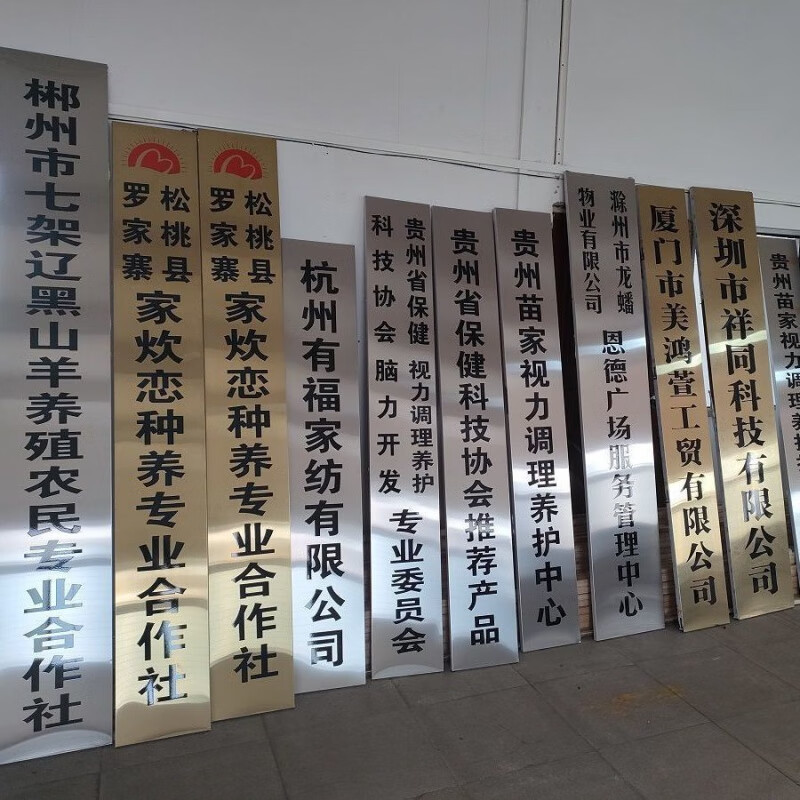 郴州市七架辽黑山羊养殖农民专业合作社
松桃县
罗家寨
家炊恋种养专业合作社
松桃县
罗家寨
家炊恋种养专业合作社
杭州有福家纺有限公司
贵州省保健
科技协会
视力调理养护
脑力开发
专业委员会
贵州省保健科技协会推荐产品
贵州苗家视力调理养护中心
滁州市龙蟠
物业有限公司
恩德广场服务管理中心
厦门市美鸿萱工贸有限公司
深圳市祥同科技有限公司
贵州苗家视力调理养护